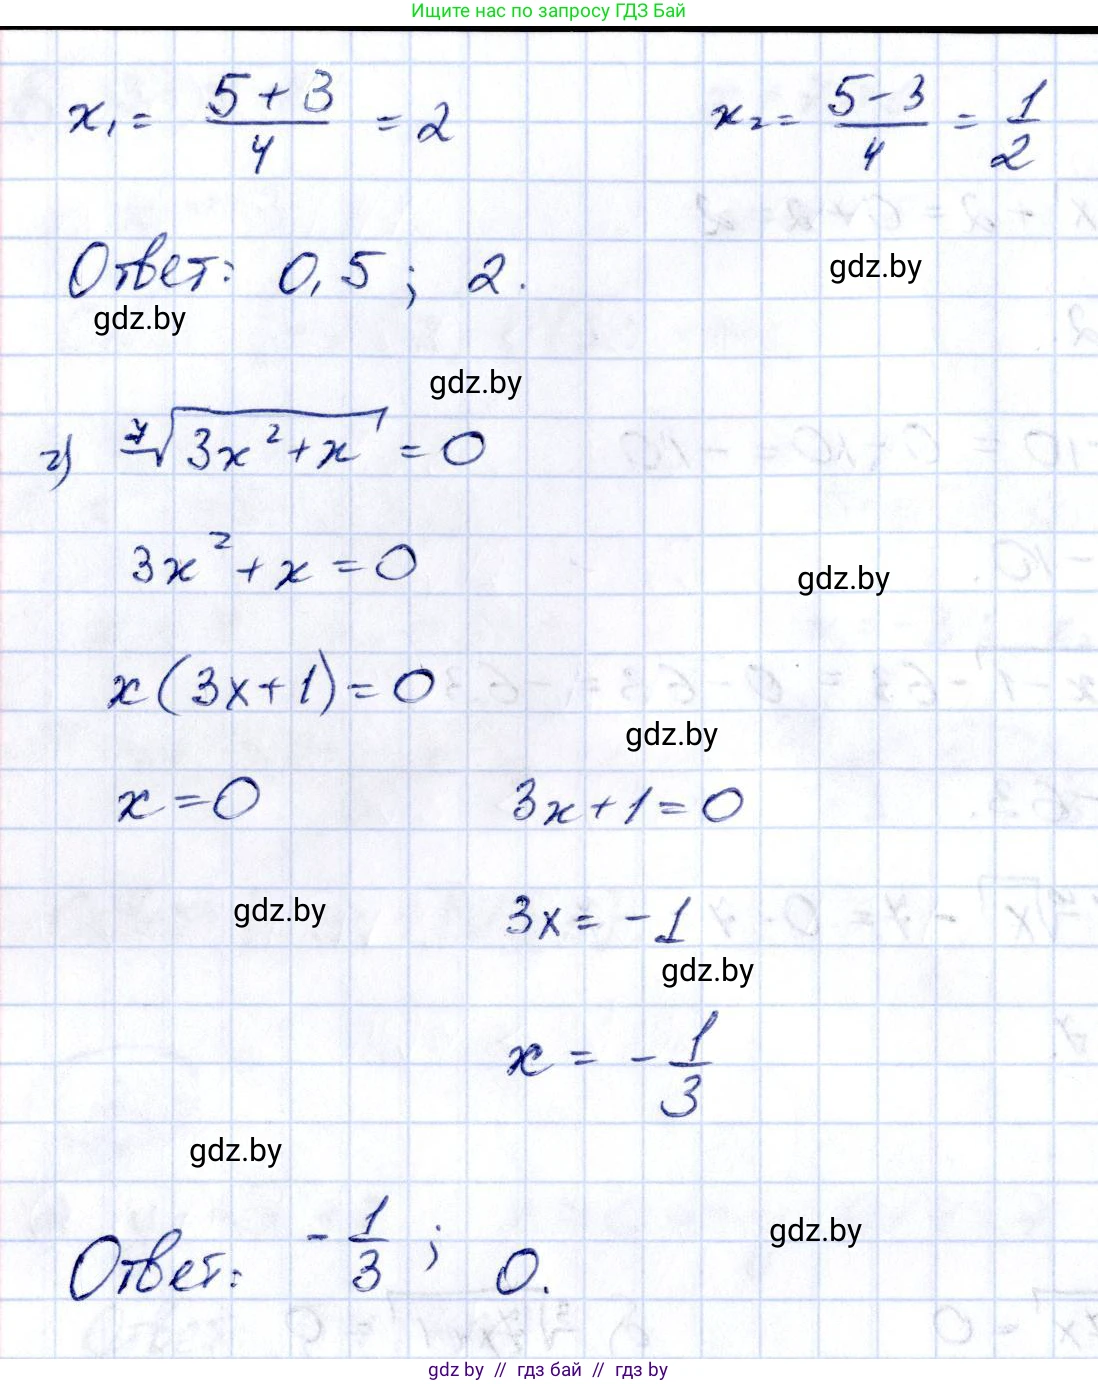 Ищите нас по запросу ГДЗ Бай
x₁ = (5+3)/4 = 2    x₂ = (5-3)/4 = 1/2
Ответ: 0,5; 2.
gdz.by
gdz.by
gdz.by
г) ⁷√(3x²+x) = 0
3x²+x=0
gdz.by
x(3x+1)=0
gdz.by
x=0    3x+1=0
gdz.by
3x=-1
gdz.by
x = -1/3
gdz.by
Ответ: -1/3; 0.
gdz.by
gdz by // гдз бай // гдз by